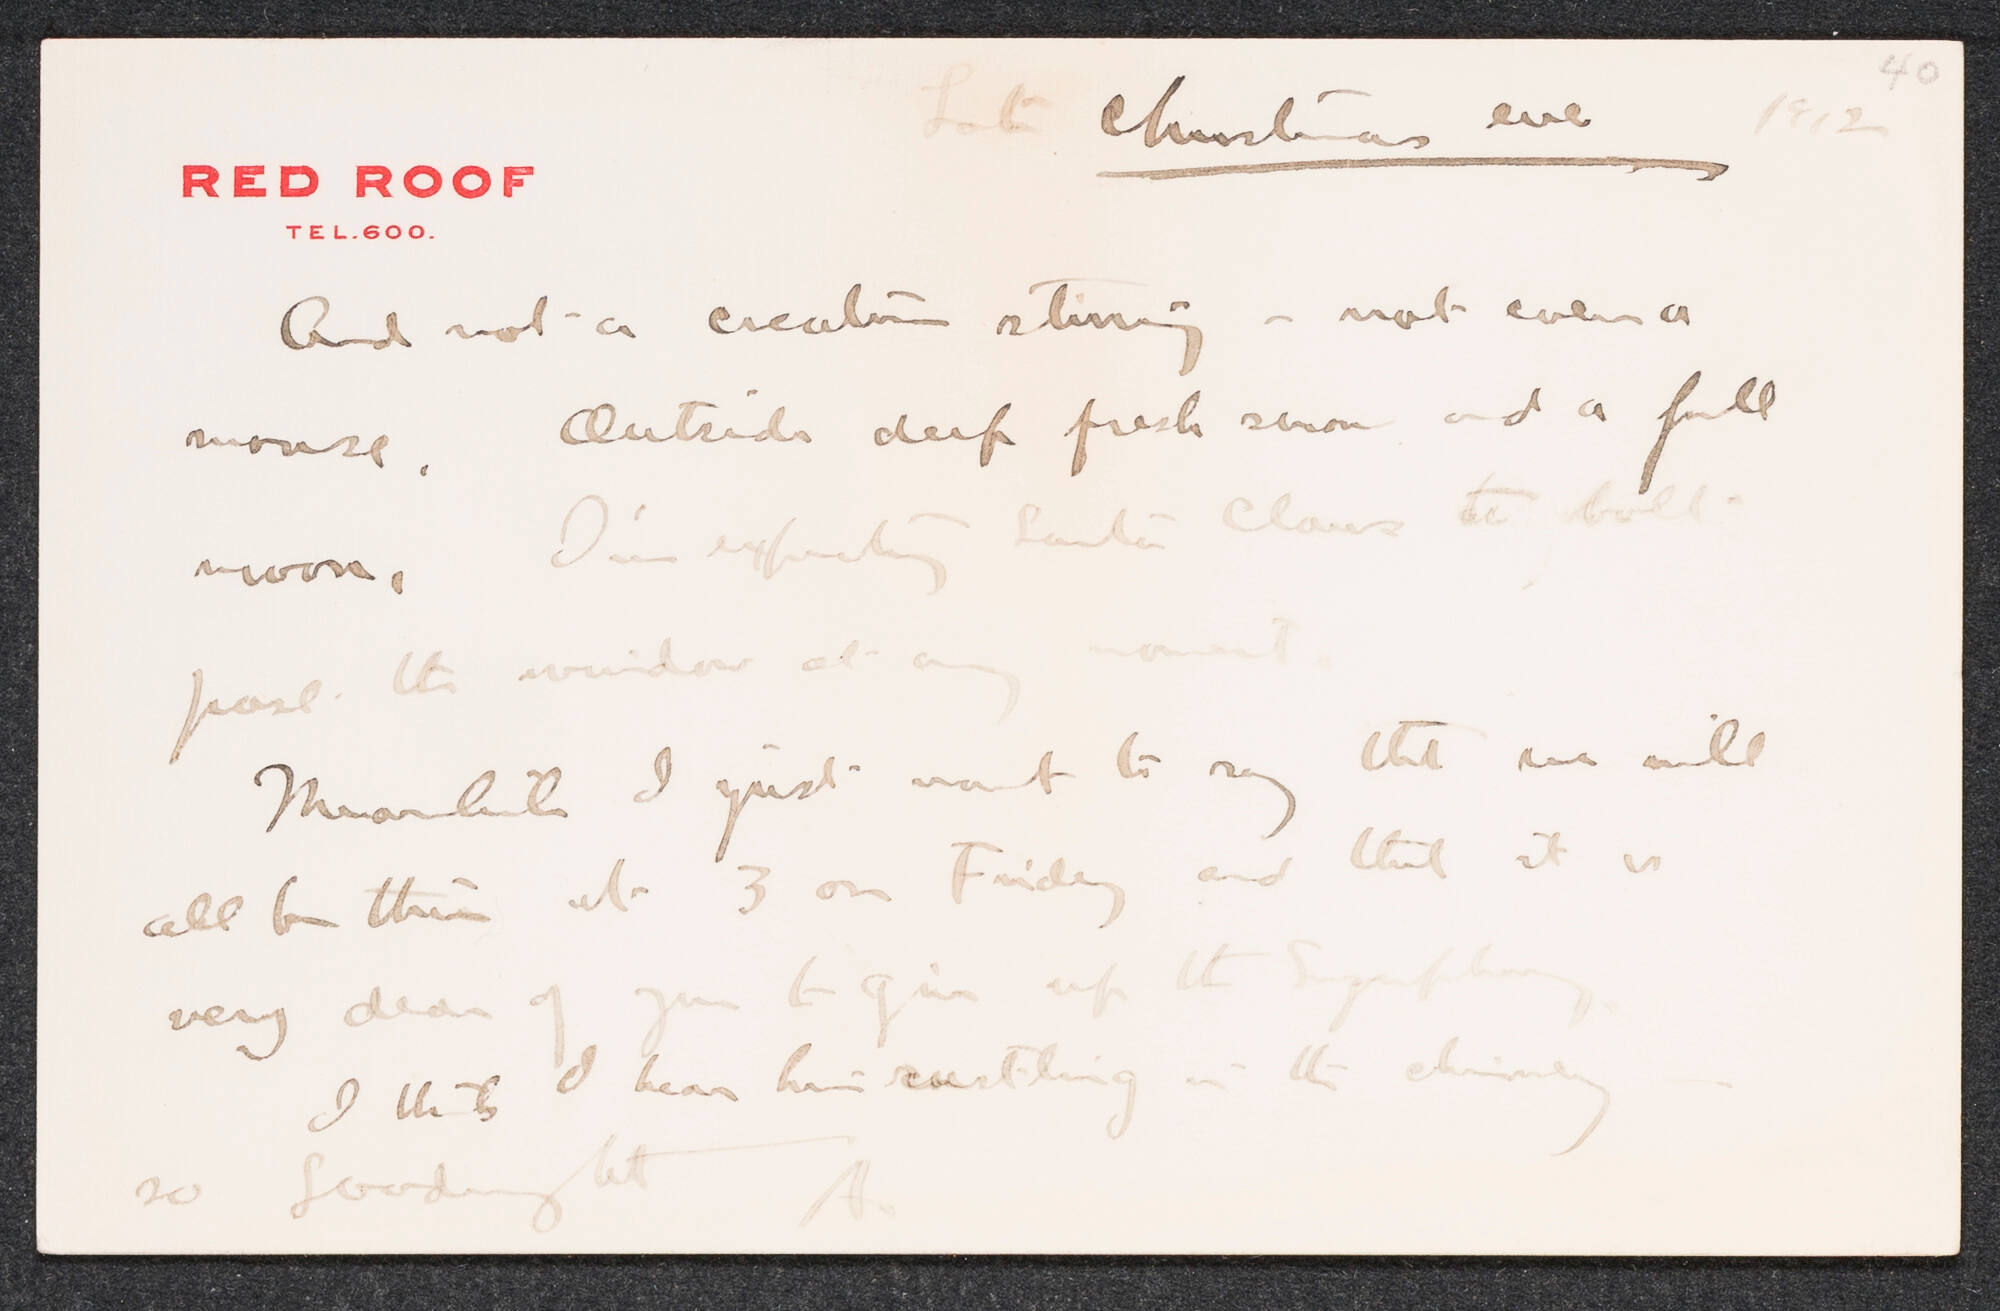 40
Late Christmas eve 1912
RED ROOF
TEL.600.
And not a creature stirring - not even a
mouse. Outside deep fresh snow and a full
moon. I'm expecting Santa Claus to bolt
past the window at any moment.
Meanwhile I just want to say that we will
all be there at 3 on Friday and that it is
very dear of you to give up the Symphony.
I think I hear him rustling in the chimney —
so Goodnight A.